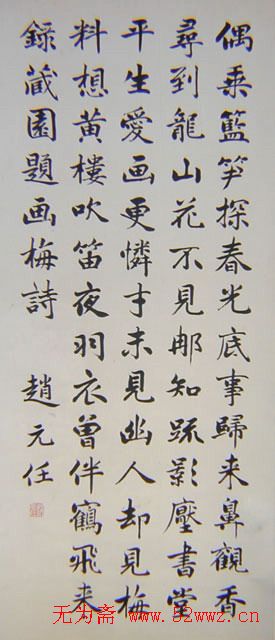 偶乘籃笋探春光底事歸来鼻觀香
尋到龍山花不見那知疏影壓書堂
平生愛画更憐才未見幽人却見梅
料想黄樓吹笛夜羽衣曾伴鶴飛来
錄藏園題画梅詩　趙元任
无为斋 www.52wwz.cn